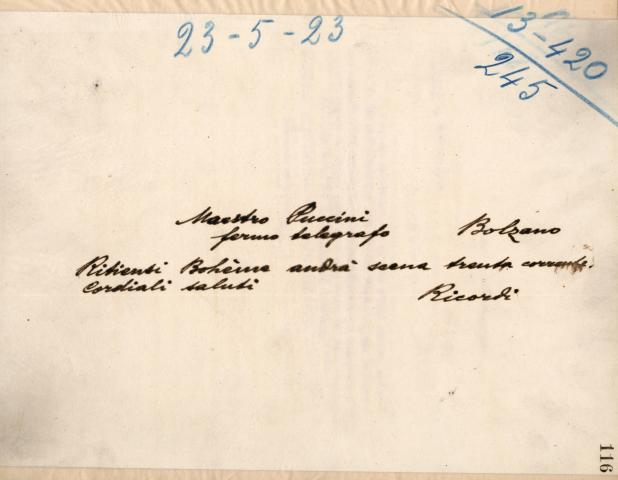 23-5-23
13-420
245
Maestro Puccini
fermo telegrafo Bolzano
Ritiensi Bohème andrà scena trenta corrente.
Cordiali saluti Ricordi
116